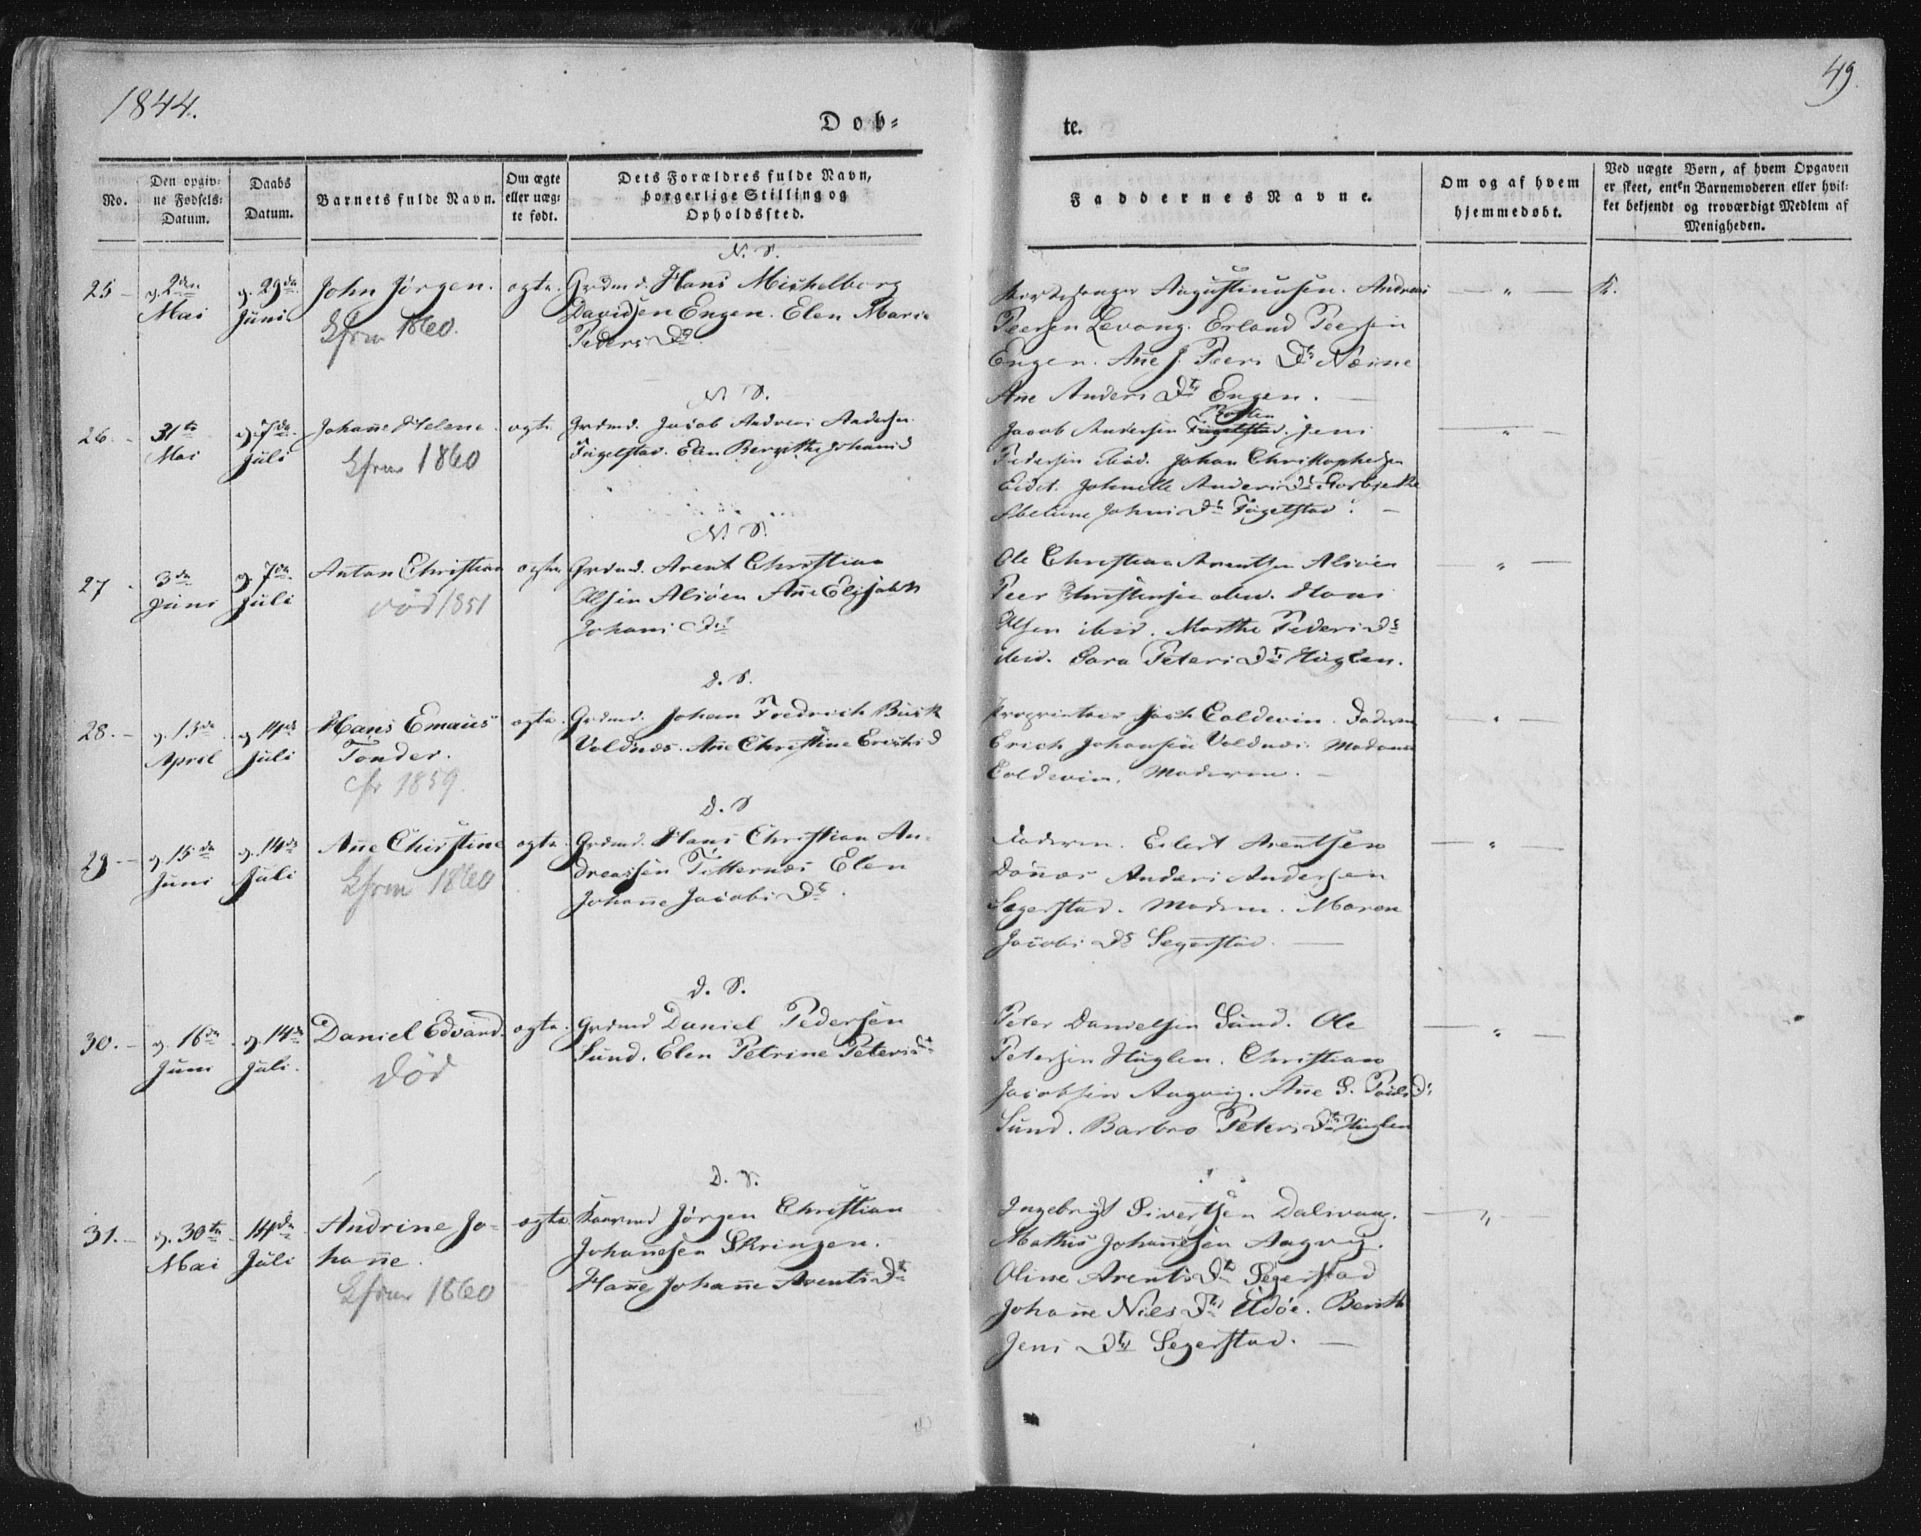 1844.
49.
Dob-
te.
No.
Den opgiv-
ne Fødsels-
Datum.
Daabs
Datum.
Barnets fulde Navn.
Om ægte
eller uæg-
te født.
Dets Forældres fulde Navn,
borgerlige Stilling og
Opholdssted.
Faddernes Navne.
Om og af hvem
hjemmedøbt.
Ved uægte Børn, af hvem Opgaven
er skeet, enten Barnemoderen eller hvil-
ket bekjendt og troværdigt Medlem af
Menigheden.
N. S.
25 -
d. 2den
Mai
d. 29de
Juni
John Jørgen.
Cfrm 1860.
ægte.
Grdmd. Hans Mechelborg
Davidsen Engen. Elen Marie
Peders Dr.
Augustinusen. Andreas
Peersen Levang. Erland Peersen
Engen. Ane J. Peers Dr
Ane Anders Dr Engen.
N. S.
26. -
31te
Mai
d. 7de
Juli
Johane Helene.
Cfrm 1860
ægte
Grdmd. Jacob Andreas Andersen
Fugelstad. Elen Bergithe Johans D
Jacob Andersen Fugelstad. Jens
Pedersen ibid. Johan Christophersen
Eidet. Johnelle Anders Dr
Johns Dr Fugelstad.
N. S.
27 -
3de
Juni
d. 7de
Juli
Anton Christian
død 1851
ægte
Grdmd. Arent Christian
Olsen Alsøen Ane Elisabeth
Johans Dr
Ole Christian Arentsen Alsøen
Peer Christensen ibid. Hans
Olsen ibid. Marthe Peders Dr
ibid. Sara Peters Dr Huglen.
D. S.
28. -
d. 13de
April
d. 14de
Juli
Hans Emaus
Tonder.
cfr 1859.
ægte.
Grdmd. Johan Fredrich Busk
Voldnæs. Ane Christine Erichs D
Proprietair Coldevin. Faderen
Erich Johansen Voldnæs. Madame
Coldevin. Moderen.
D. S
29 -
d. 15de
Juni
d. 14de
Juli
Ane Christine
Cfrm 1860
ægte.
Grdmd. Hans Christian An-
dreassen Titternæs Elen
Johane Jacobs Dr.
Faderen. Eilert Arentsen
Dønnæs Anders Andersen
Segerstad. Modren. Maren
Jacobs Dr Segerstad.
D. S.
30. -
d. 16de
Juni
d. 14de
Juli.
Daniel Edvard.
død
ægte.
Grdmd Daniel Pedersen
Sund. Elen Petrine Peters Dr
Peter Danielsen Sund. Ole
Petersen Huglen. Christian
Jacobsen Aagvig. Ane P. Pouls Dr
Sund. Barbro Peters Dr Huglen
D. S.
31. -
d. 30te
Mai
14de
Juli
Andrine Jo-
hane.
Cfrm 1860
ægte
Jørgen Christian
Johanesen Skringen.
Hane Johane Arents Dr
Ingebrigt Sivertsen Dalsvaag.
Mathis Johanesen Aagvig.
Oline Arents Dr Segerstad
Johane Niels Dr Berith
Jens Dr Segerstad.